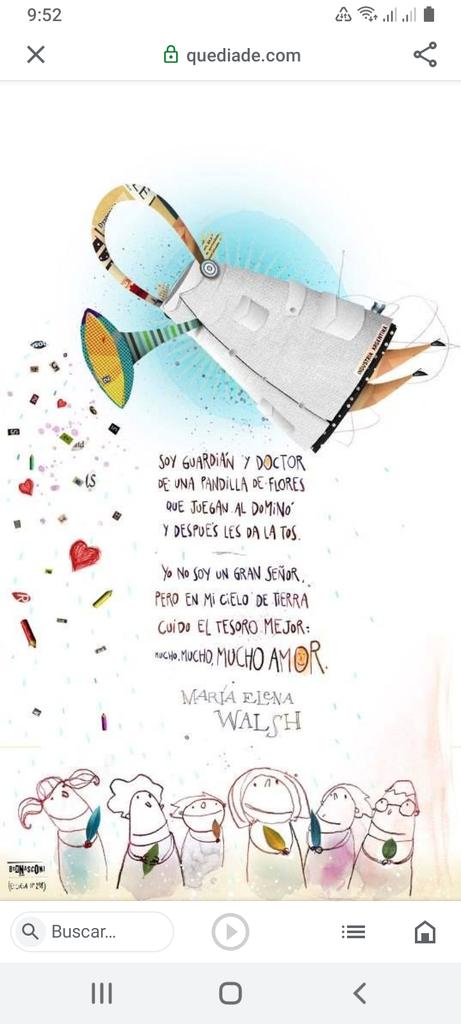 9:52
quediade.com
INDUSTRIA ARGENTINA
SOY GUARDIÁN Y DOCTOR
DE UNA PANDILLA DE FLORES
QUE JUEGAN AL DOMINÓ
Y DESPUÉS LES DA LA TOS.
YO NO SOY UN GRAN SEÑOR,
PERO EN MI CIELO DE TIERRA
CUIDO EL TESORO MEJOR:
MUCHO, MUCHO, MUCHO AMOR.
MARÍA ELENA
WALSH
Buscar...